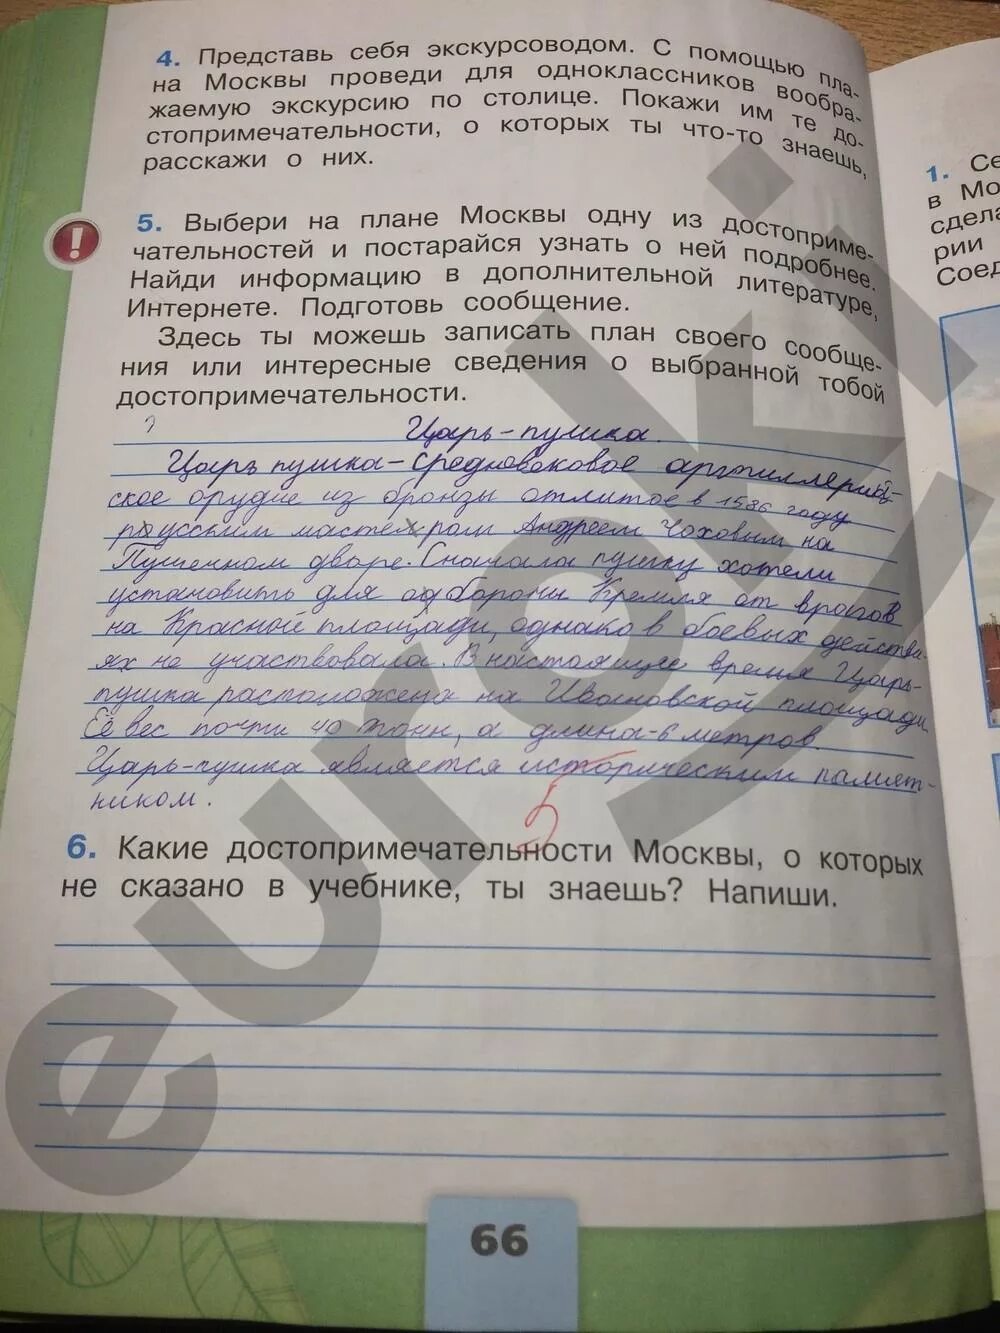 4. Представь себя экскурсоводом. С помощью пла-
на Москвы проведи для одноклассников вообра-
жаемую экскурсию по столице. Покажи им те до-
стопримечательности, о которых ты что-то знаешь,
расскажи о них.
5. Выбери на плане Москвы одну из достоприме-
чательностей и постарайся узнать о ней подробнее.
Найди информацию в дополнительной литературе,
Интернете. Подготовь сообщение.
Здесь ты можешь записать план своего сообще-
ния или интересные сведения о выбранной тобой
достопримечательности.
Царь-пушка.
Царь пушка-средневековое артиллерий-
ское орудие из бронзы отлитое в 1586 году
русским мастером Андреем Чоховым на
Пушечном дворе. Сначала пушку хотели
установить для обороны Кремля от врагов
на Красной площади, однако в боевых действи-
ях не участвовала. В настоящее время Царь-
пушка расположена на Ивановской площади.
Её вес почти 40 тонн, а длина-6 метров.
Царь-пушка является историческим памят-
ником.
5
6. Какие достопримечательности Москвы, о которых
не сказано в учебнике, ты знаешь? Напиши.
66
1. Се
в Мо
сдела
рии
Соед
euroki